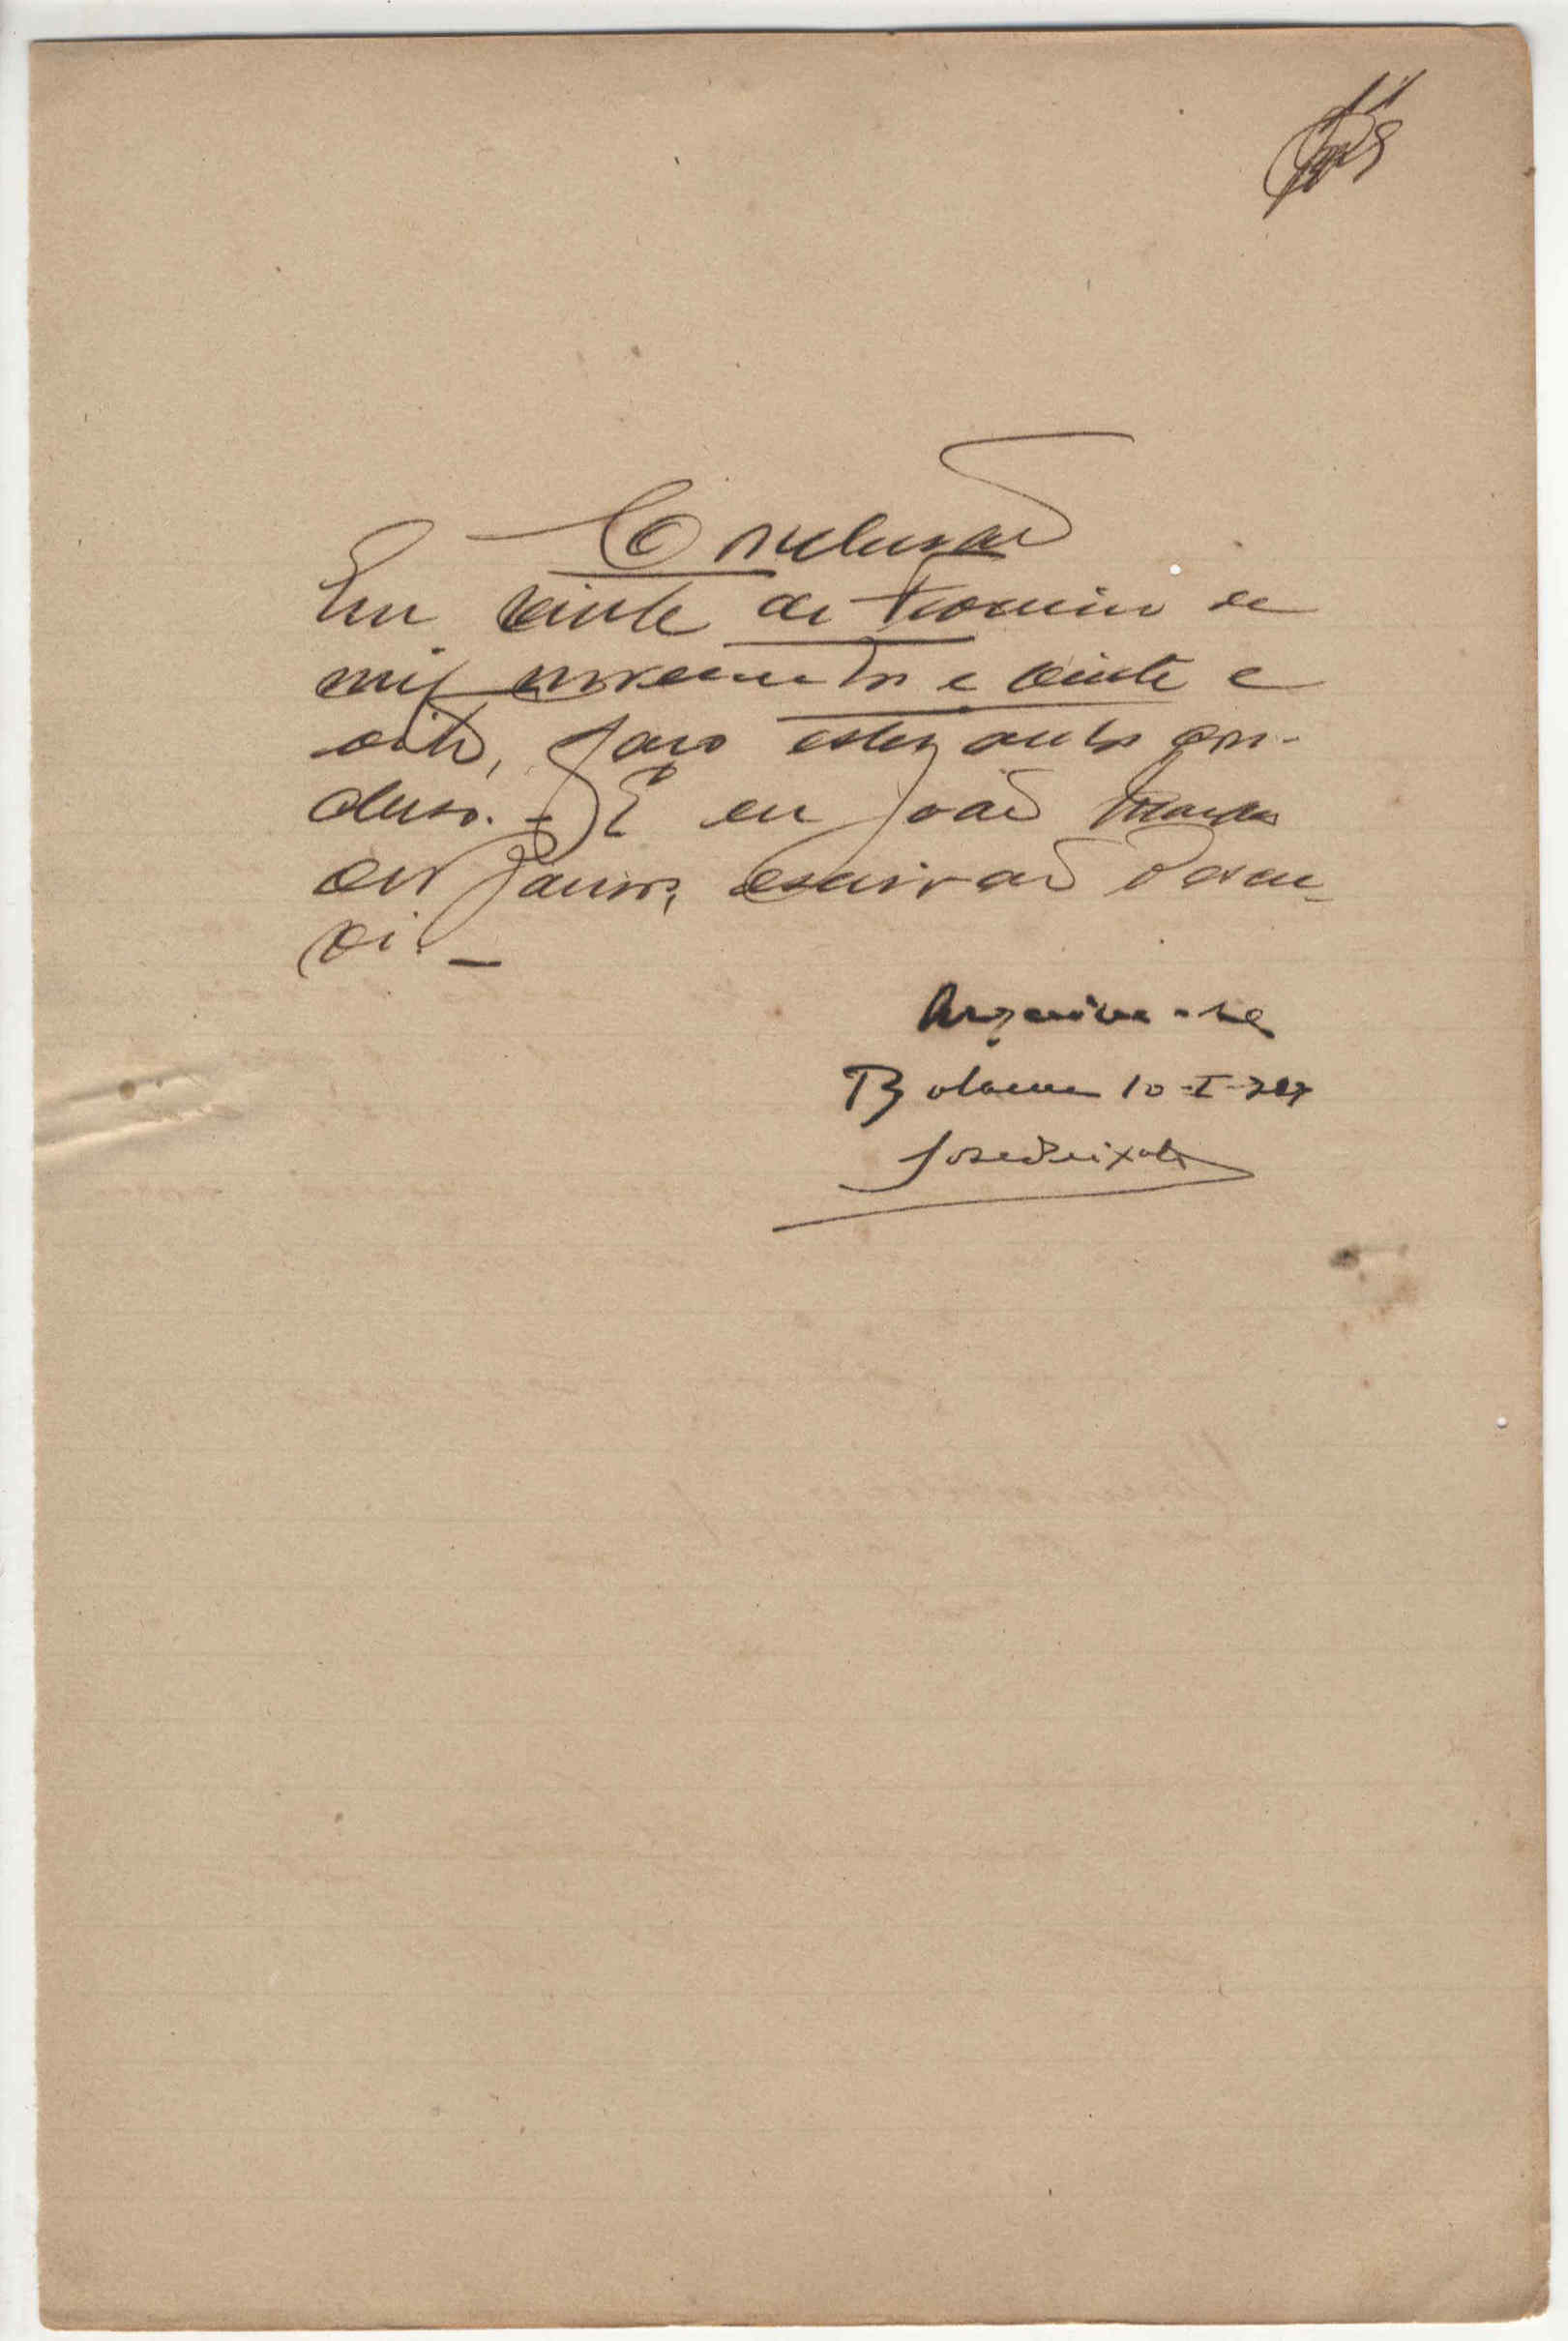 11
Conclusão
Em vinte de Janeiro de
mil novecentos e vinte e
oito, faço estes autos con-
cluso. - E eu João
dos Passos, escrivão o escre-
vi. -
Archive-se
10-I-
José Peixoto